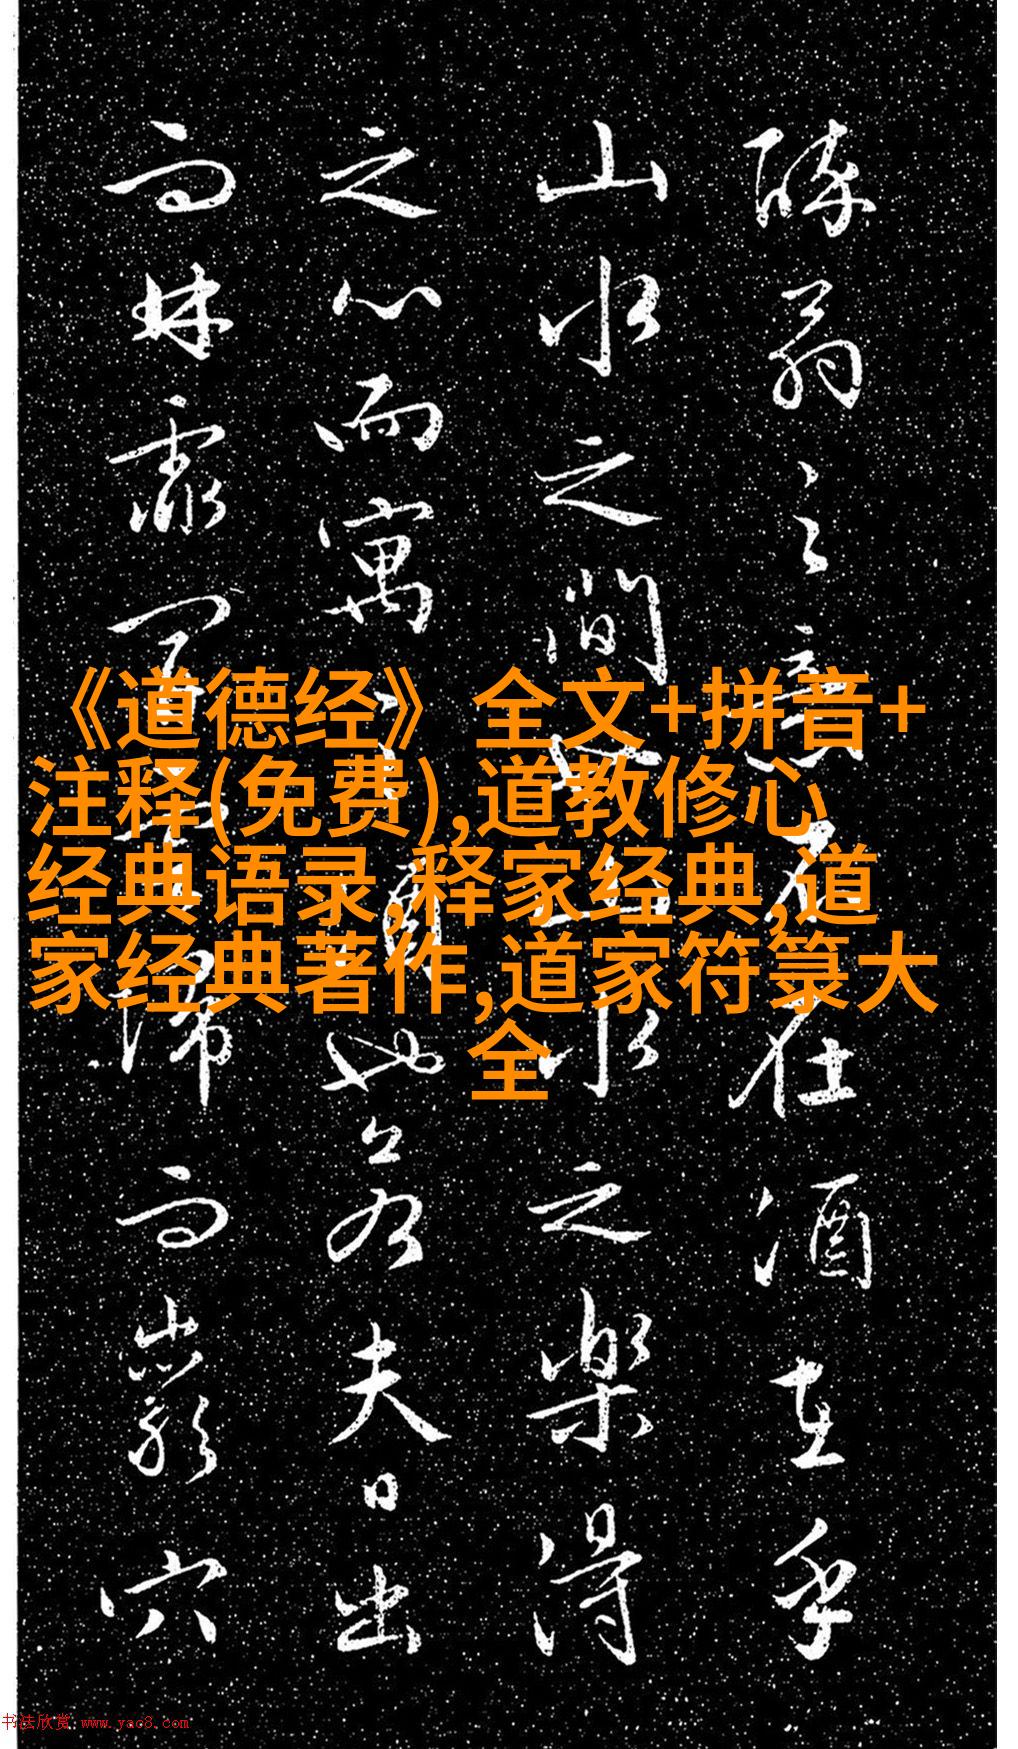 醉翁之意不在酒在乎
山水之間也山水之樂得
之心而寓之酒也若夫日出
而林霏開雲歸而巖穴
《道德经》全文+拼音+
注释(免费),道教修心
经典语录,释家经典,道
家经典著作,道家符箓大
全
书法欣赏 www.yac8.com